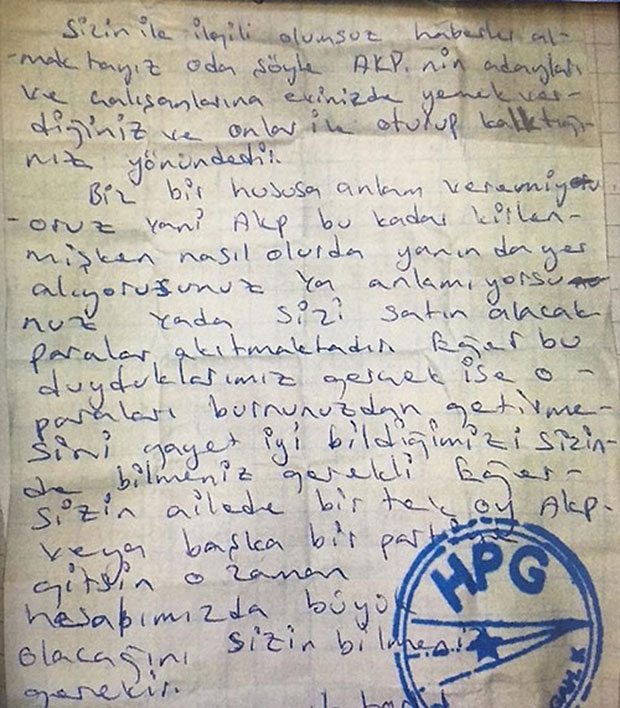 Sizin ile ilgili olumsuz haberler al-
-mak tayız oda söyle AKP. nin adayları
ve çalışanlarına evinizde yemek ver-
diğiniz ve onlar ile oturup kalktığı-
nız yönündedir.
Biz bir hususa anlam veremiy
-oruz yani Akp bu kadar kirlen-
mişken nasıl olurda yanında yer
alıyorusunuz ya anlamıyorsu
nuz yada sizi satın alacak
paralar akıtmaktadır Eğer bu
duyduklarımız gerçek ise o-
paraları burnunuzdan getirme-
sini gayet iyi bildiğimizi sizin-
de bilmeniz gerekli Eğer-
sizin ailede bir tek oy Akp-
veya başka bir partiye
gitsin o zaman
hesabımızda büyük
olacağını sizin bilmeniz
gerekir.
HPG